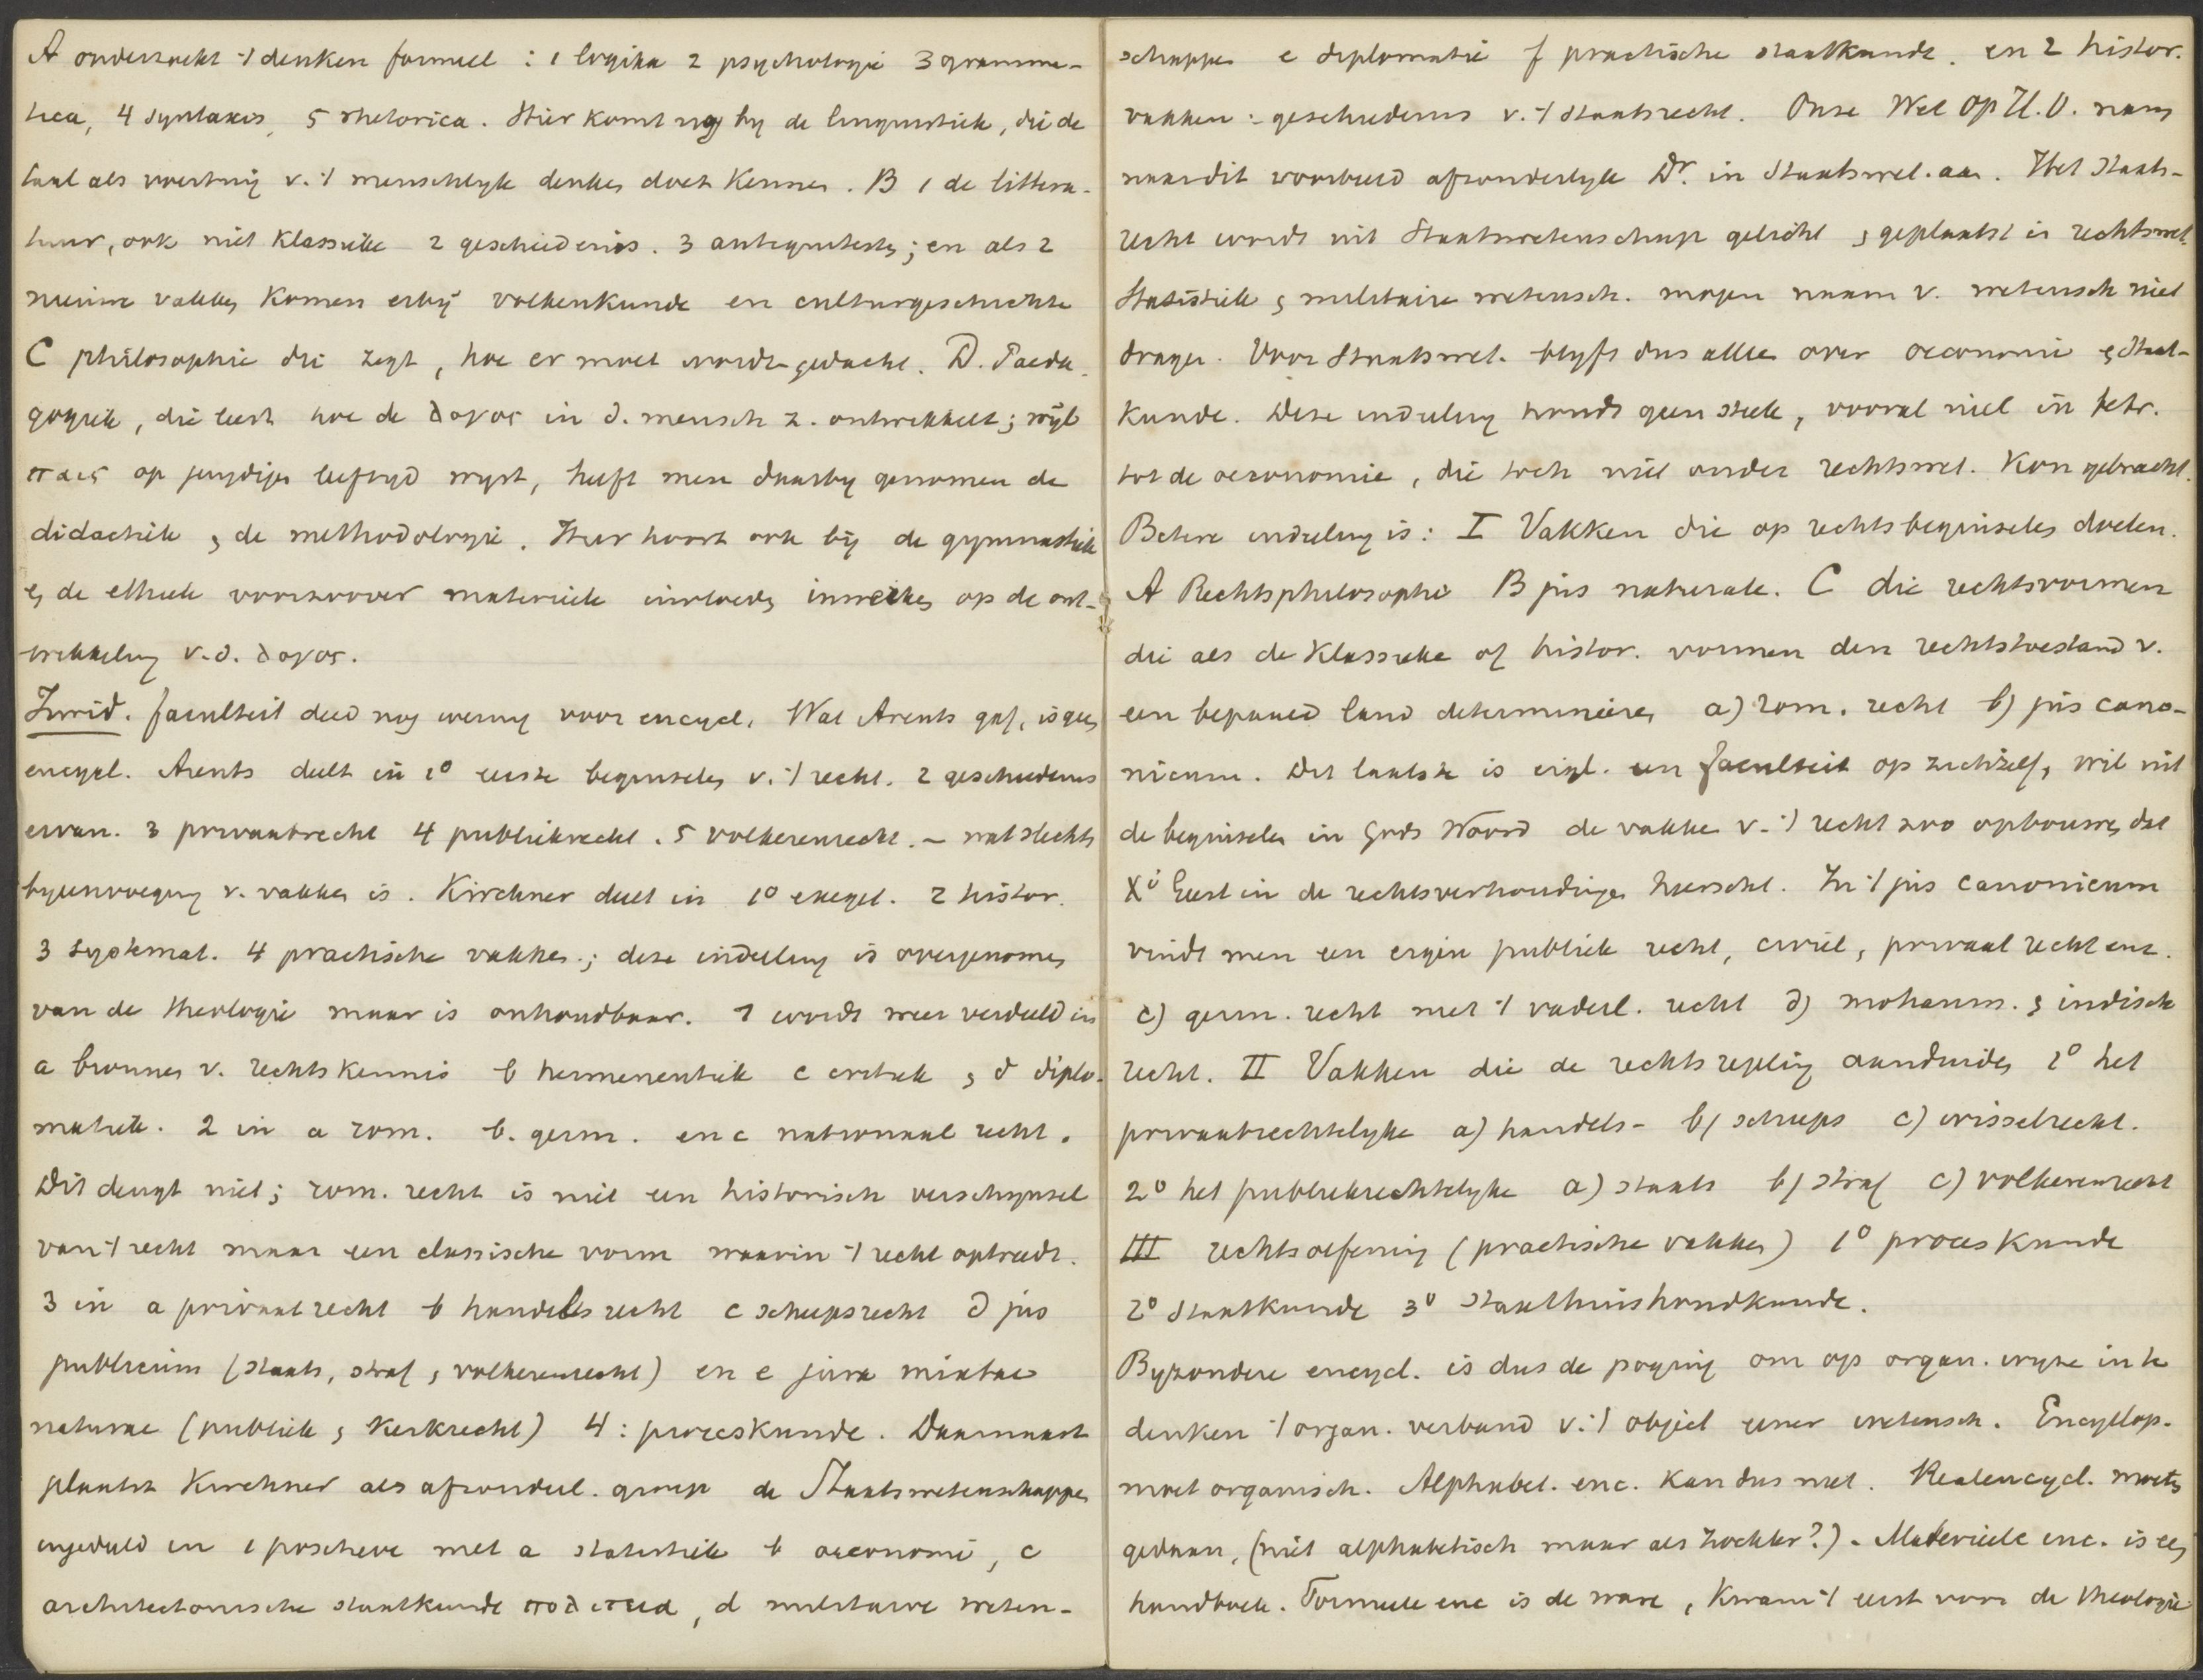 A onderzoekt 't denken formeel : 1 logika 2 psychologie 3 gramma-
tica, 4 syntaxis, 5 rhetorica. Hier komt nog by de linguistiek, die de
taal als voertuig v. 't menschlyk denken doet kennen. B 1 de littera-
tuur, ook niet klassieke 2 geschiedenis. 3 antiquiteiten; en als 2
nieuwe vakken komen erbij volkenkunde en culturgeschichte
C philosophie die zegt, hoe er moet worden gedacht. D. Paeda-
gogiek, die leert hoe de λογος in d. mensch z. ontwikkelt; wijl
παις op jeugdigen leeftyd wyst, heeft men daarby genomen de
didactiek & de methodologie. Hier hoort ook bij de gymnastiek
& de ethiek voorzoover materieele invloeden inwerken op de ont-
wikkeling v.d. λογος.
Jurid. faculteit deed nog weinig voor encycl. Wat Arents gaf, is geen
encycl. Arents deelt in 1° eerste beginselen v. 't recht. 2 geschiedenis
ervan. 3 privaatrecht 4 publiekrecht. 5 volkerenrecht. – wat slechts
byeenvoeging v. vakken is. Kirchner deelt in 1° exeget. 2 histor.
3 systemat. 4 practische vakken.; deze indeeling is overgenomen
van de theologie maar is onhoudbaar. 1 wordt weer verdeeld in
a bronnen v. rechtskennis b hermeneutiek c critiek & d diplo-
matiek. 2 in a rom. b. germ. en c nationaal recht.
Dit deugt niet; rom. recht is niet een historisch verschynsel
van 't recht maar een classische vorm waarin 't recht optreedt.
3 in a privaatrecht b handelsrecht c scheepsrecht d jus
publicum (staats, straf & volkerenrecht) en e jura mixtae
naturae (publiek & kerkrecht) 4 : proceskunde. Daarnaast
plaatst Kirchner als afzonderl. groep de Staatswetenschappen
ingedeeld in 1 positieve met a statistiek b oeconomie, c
architectonische staatkunde πολιτεια, d militaire weten-
schappen e diplomatie f practische staatkunde. en 2 histor.
vakken : geschiedenis v. 't staatsrecht. Onze Wet op H.O. nam
naar dit voorbeeld afzonderlyk Dr. in Staatswet. aan. Het staats-
recht wordt uit Staatswetenschap gelicht & geplaatst in rechtswet.
Statistiek & militaire wetensch. mogen naam v. wetensch niet
dragen. Voor Staatswet. blyft dus alleen over oeconomie & staat-
kunde. Deze indeeling houdt geen steek, vooral niet in betr.
tot de oeconomie, die toch niet onder rechtswet. kon gebracht.
Betere indeeling is : I Vakken die op rechtsbeginselen doelen.
A Rechtsphilosophie B jus naturale. C die rechtsvormen
die als de klassieke of histor. vormen den rechtstoestand v.
een bepaald land determineeren a) rom. recht b) jus cano-
nicum. Dit laatste is eigl. een faculteit op zichzelf, wil uit
de beginselen in Gods Woord de vakken v. 't recht zoo opbouwen, dat
Xs Geest in de rechtsverhoudingen heerscht. In 't jus canonicum
vindt men een eigen publiek recht, civiel, privaat recht enz.
c) germ. recht met 't vaderl. recht d) mohamm. & indisch
recht. II Vakken die de rechtsregeling aanduiden 1° het
privaatrechtelyke a) handels- b) scheeps c) wisselrecht.
2° het publiekrechtelyke a) staats b) straf c) volkerenrecht
III rechtsoefening (practische vakken) 1° proceskunde
2° staatkunde 3° staathuishoudkunde.
Byzondere encycl. is dus de poging om op organ. wyze in te
denken 't organ. verband v. 't object eener wetensch. Encyclop.
moet organisch. Alphabet. enc. kan dus niet. Realencycl. moeten
gedaan, (niet alphabetisch maar als ?). Materieele enc. is een
handboek. Formeele enc is de ware, kwam 't eerst voor de theologie